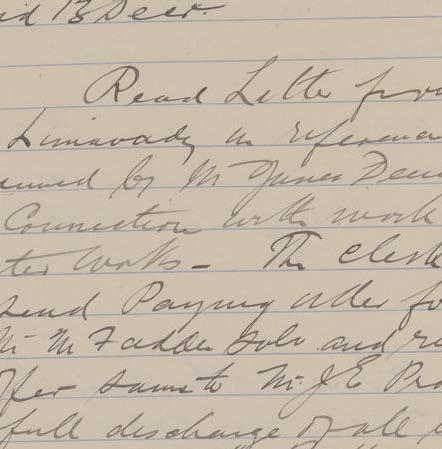 id 13 Decr.
Read Letter from
Limavady in reference
by Mr James
Connection with work
ter Works – The Clerk
send Paying Order fo
Mr McFadden Solr and re
offer same to Mr. J E Pro
full discharge of all